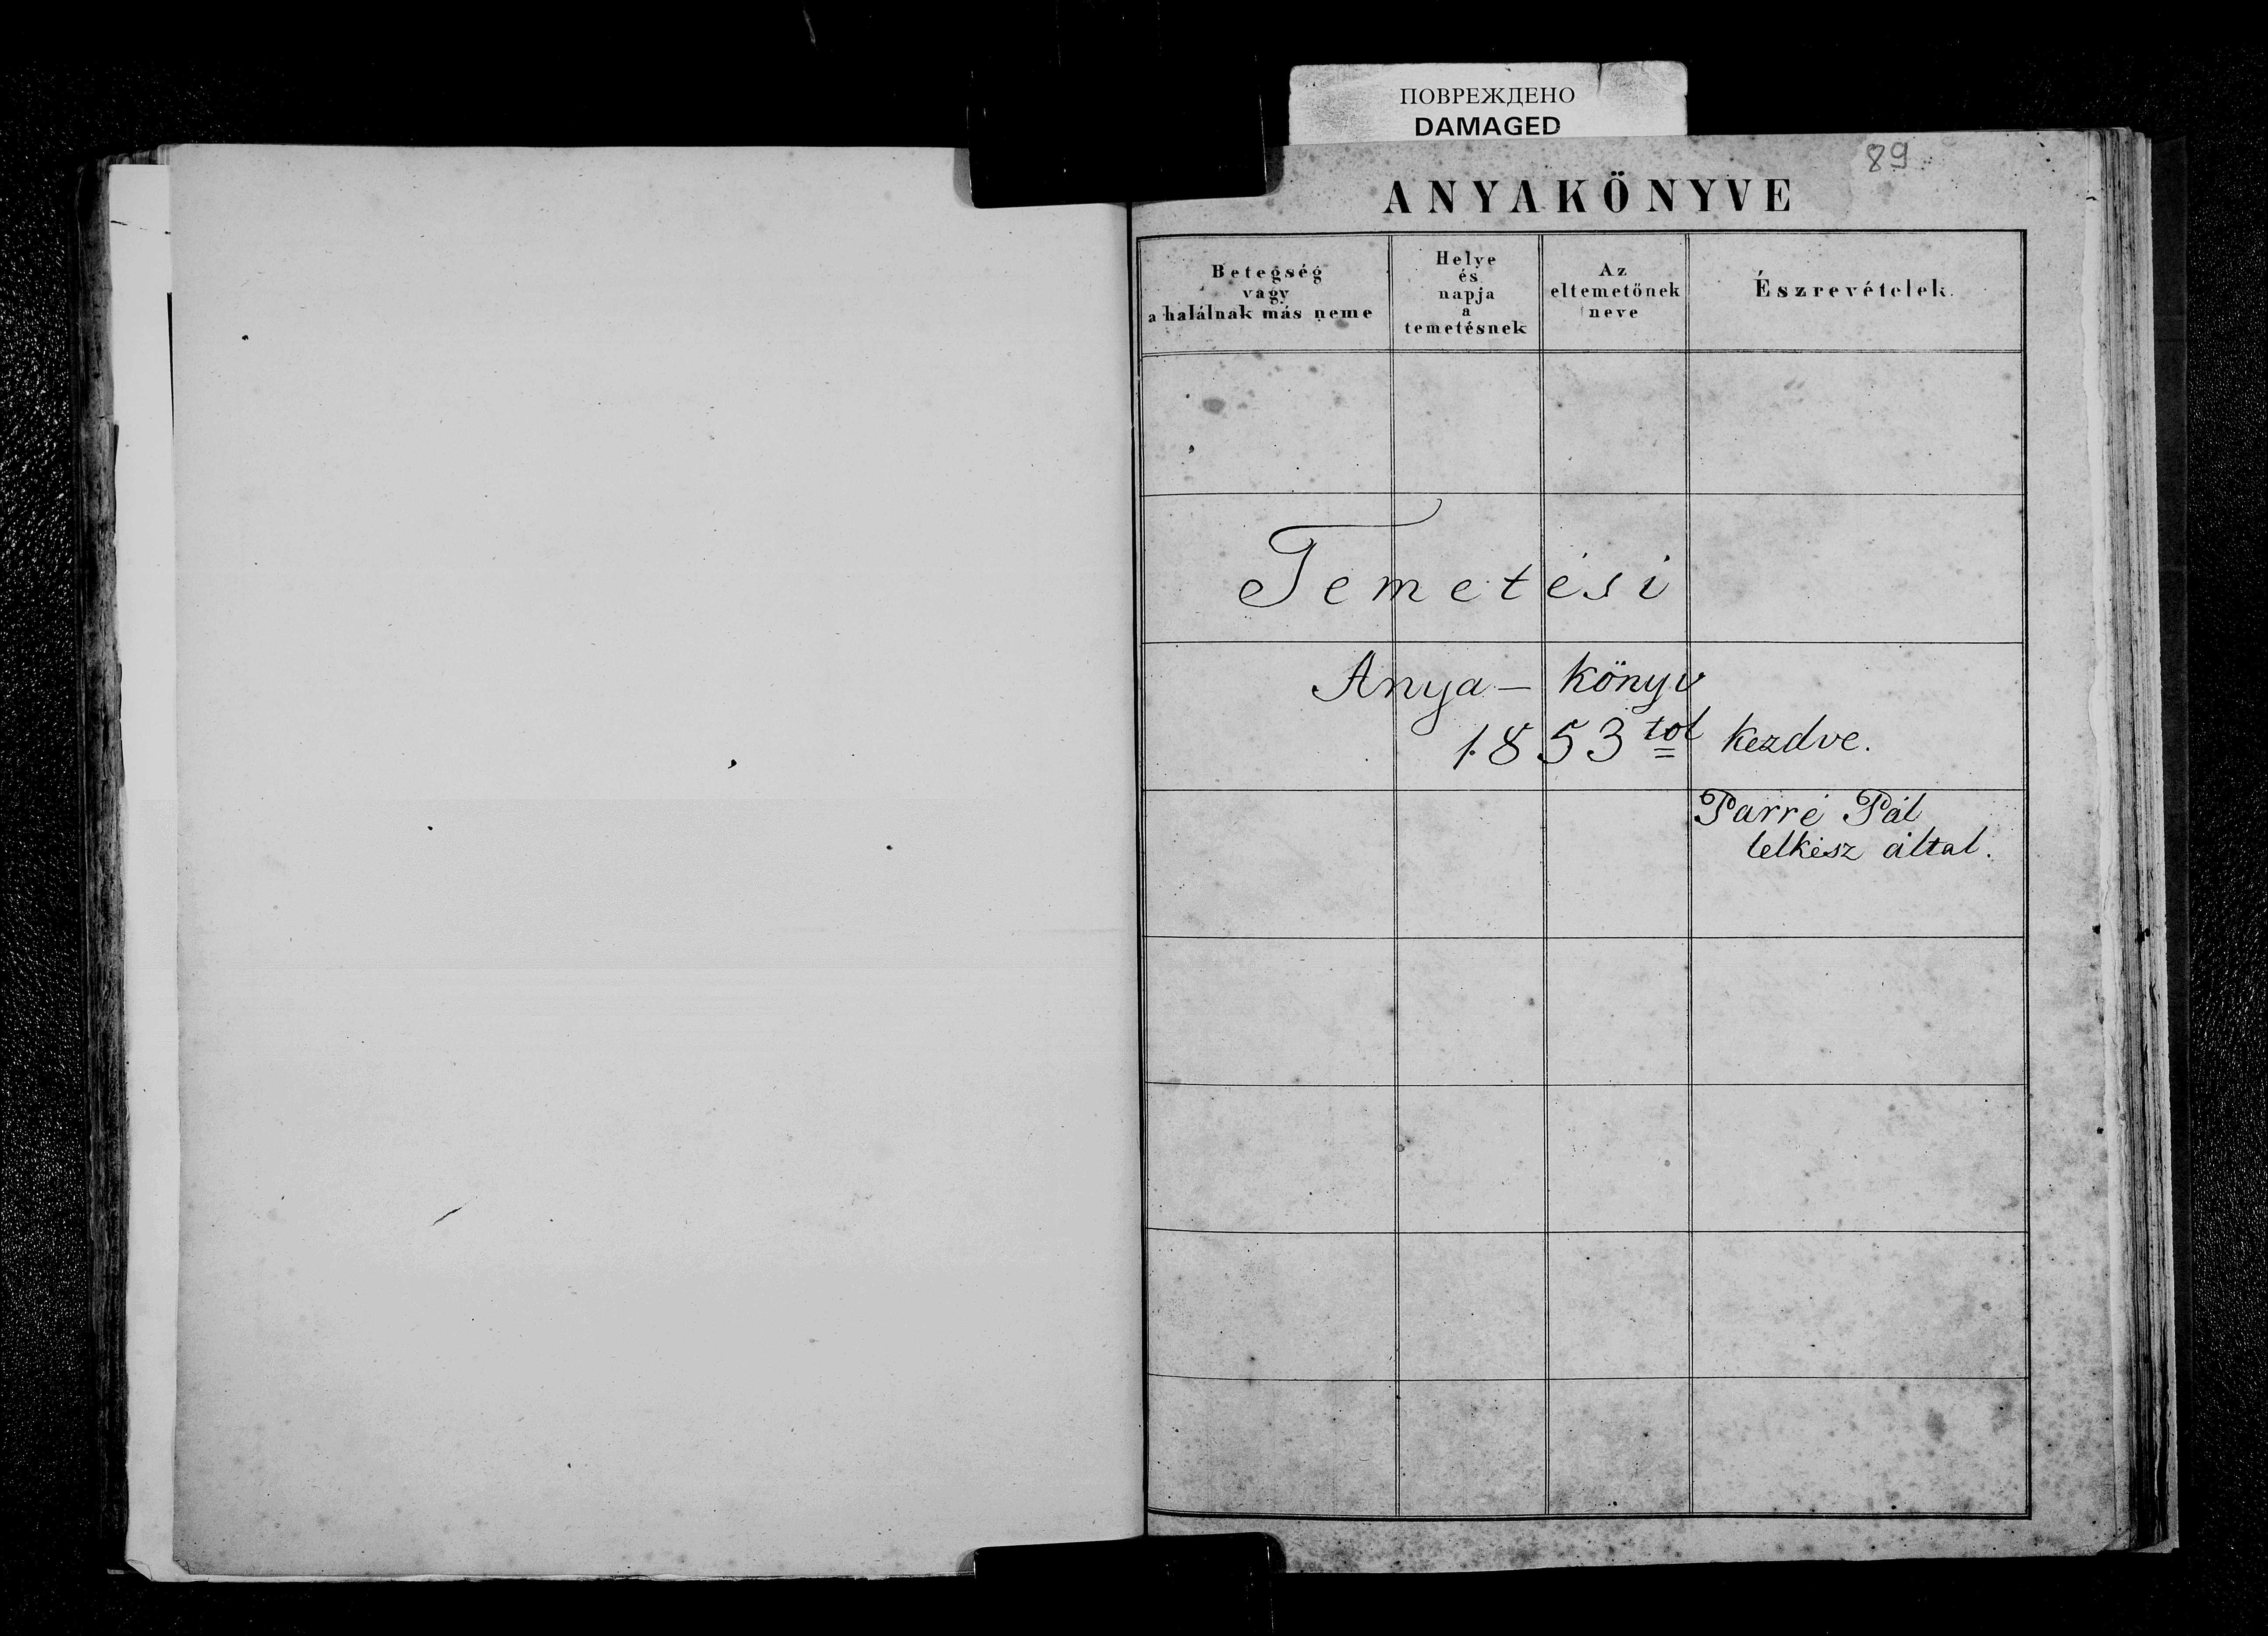 ПОВРЕЖДЕНО
DAMAGED
89
ANYAKÖNYVE
Betegség
vagy
a halálnak más neme
Helye
és
napja
a
temetésnek
Az
eltemetőnek
neve
Észrevételek.
Temetési
Anya- könyv
1853tol kezdve.
Parré Pál
lelkész által.